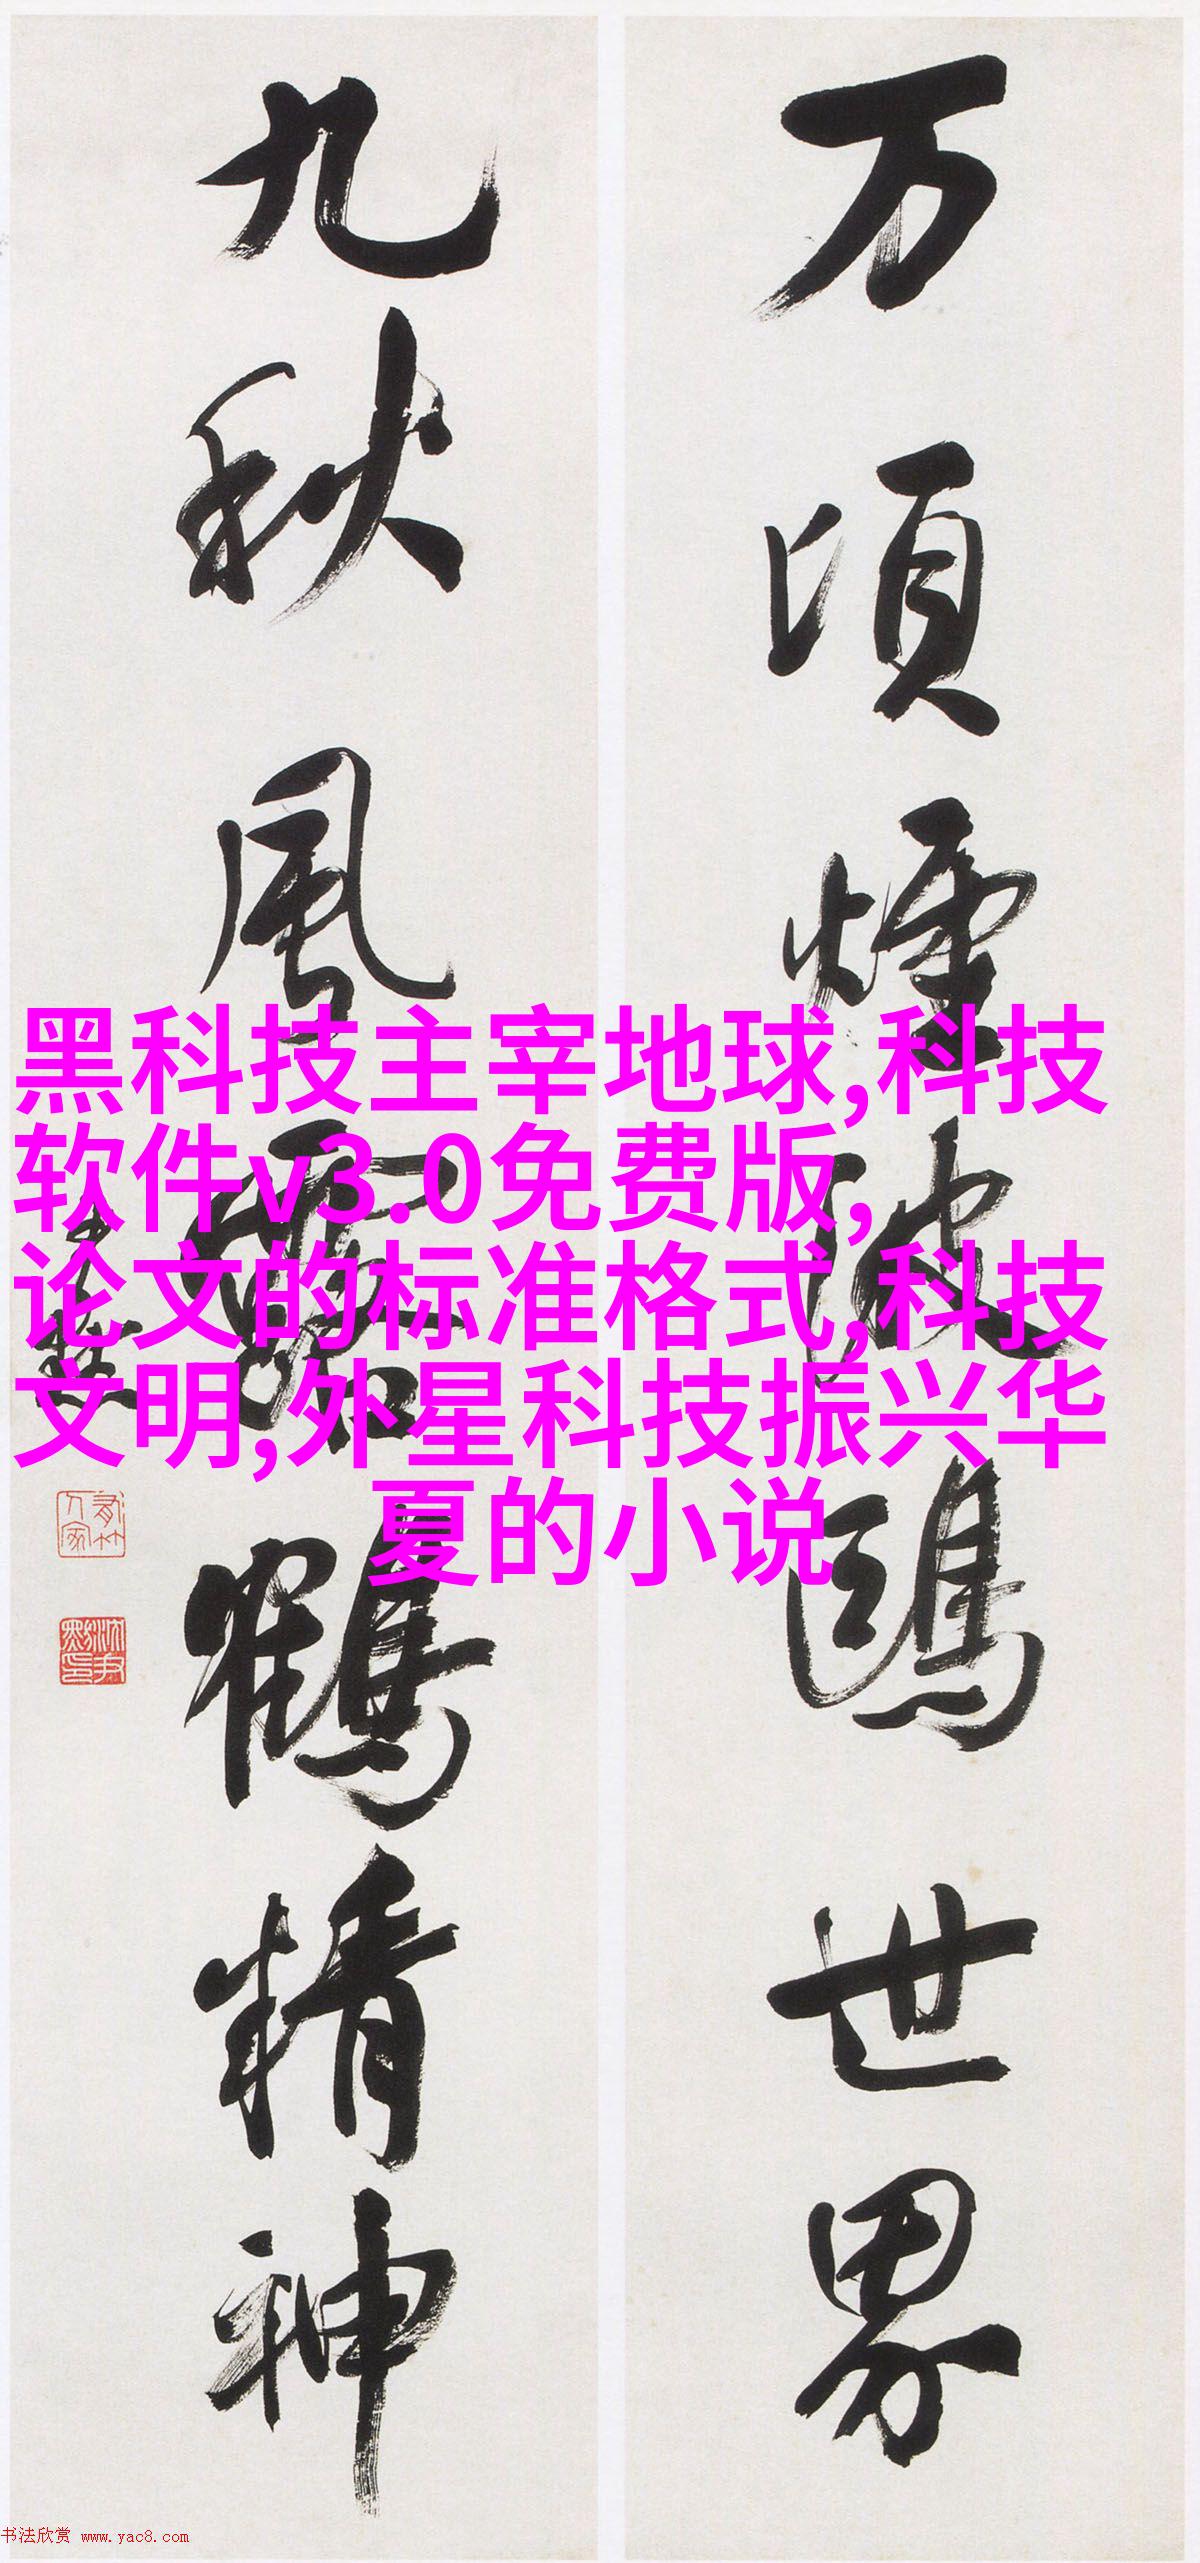 万顷煙波鷗世界
九秋風露鶴精神
尹默
黑科技主宰地球,科技
软件v3.0免费版,
论文的标准格式,科技
文明,外星科技振兴华
夏的小说
沈尹默印
书法欣赏 www.yac8.com